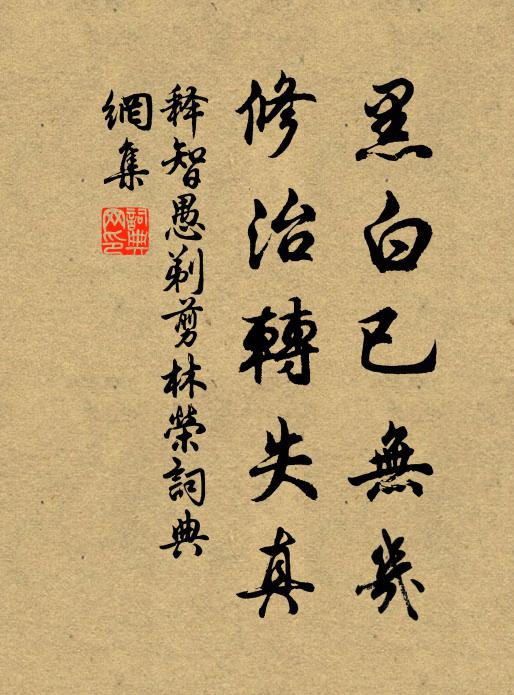 黑白已無幾
修治轉失真
释智愚剃剪林榮詞典
網集
詞典網印